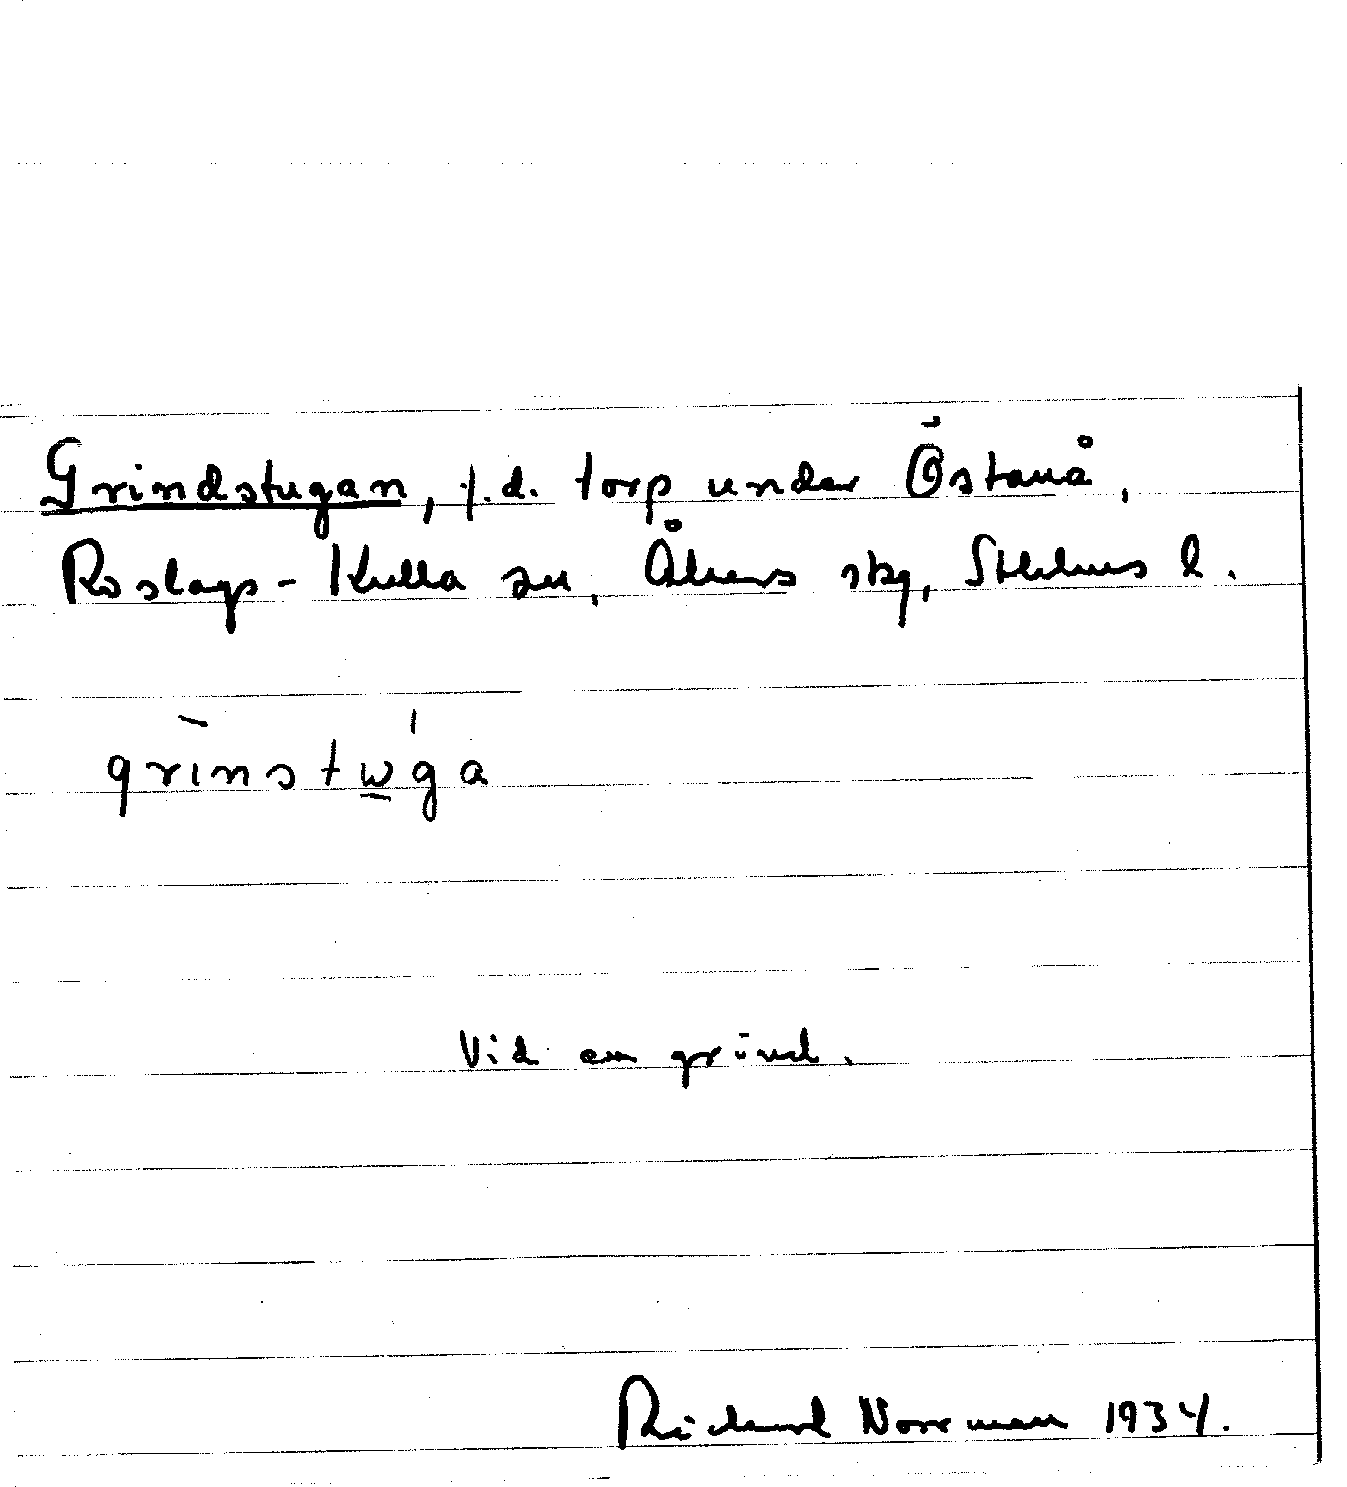 Grindstugan, f.d. torp under Östanå,
Roslags-Kulla sn, Åkers skg, Sthlms l.
grinstwga
Vid en grind.
Richard Norrman 1934.